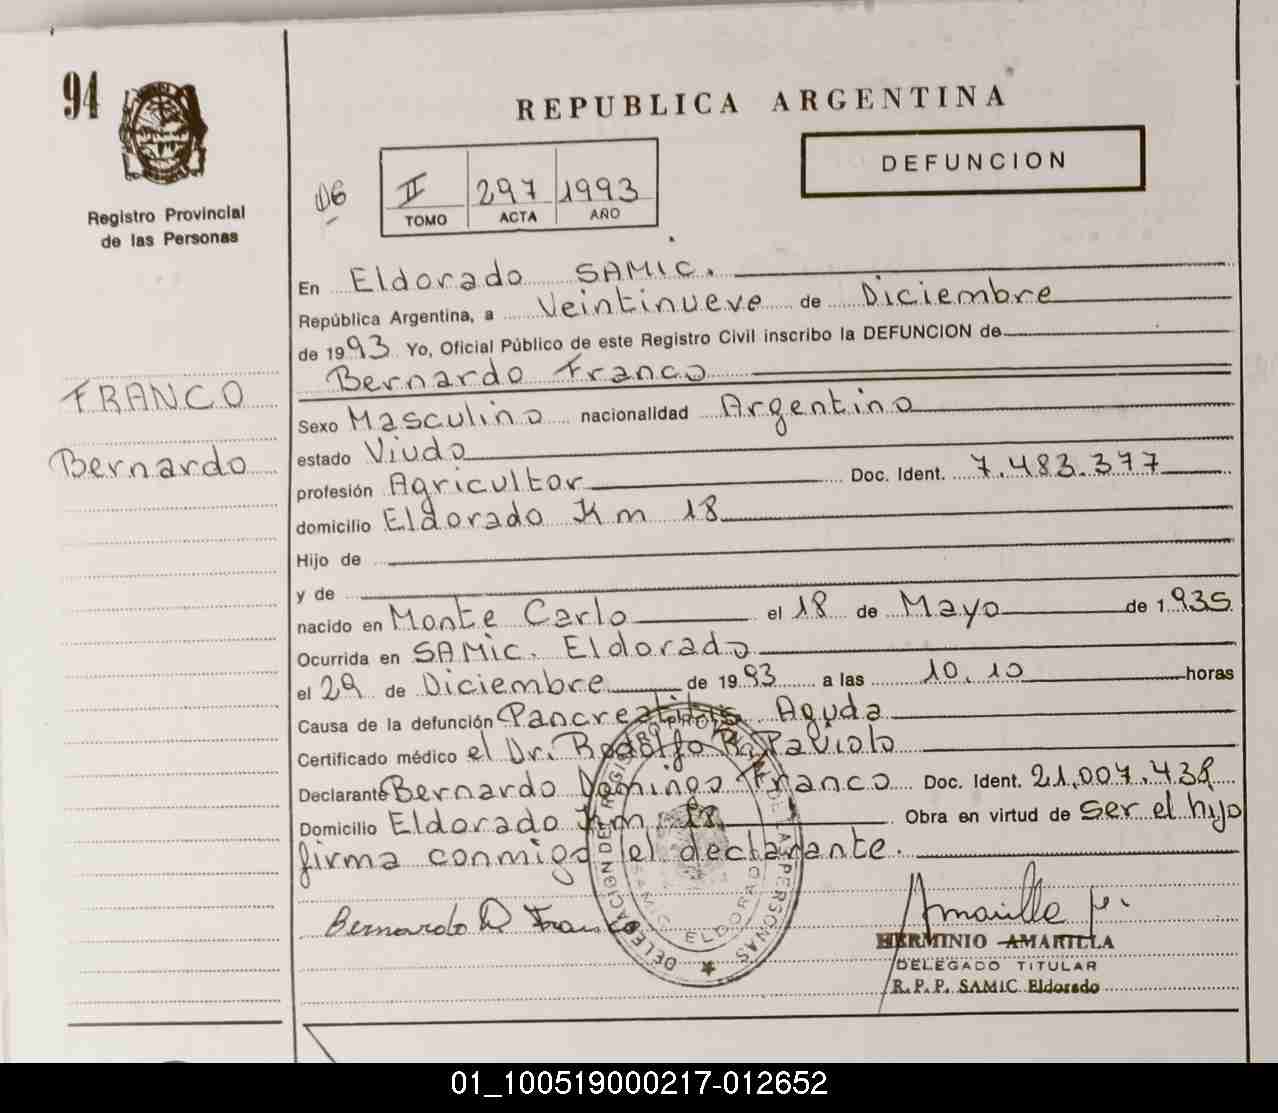 94
REPUBLICA ARGENTINA
DEFUNCION
Registro Provincial
de las Personas
DG
II 297 1993
TOMO ACTA AÑO
En Eldorado SAMIC.
República Argentina, a Veintinueve de Diciembre
de 1993 Yo, Oficial Público de este Registro Civil inscribo la DEFUNCION de
Bernardo Franco
FRANCO
Bernardo
Sexo Masculino nacionalidad Argentino
estado Viudo
profesión Agricultor Doc. Ident. 7.483.377
domicilio Eldorado Km 18
Hijo de
y de
nacido en Monte Carlo el 18 de Mayo de 1.935
Ocurrida en SAMIC. Eldorado
el 29 de Diciembre de 1993 a las 10.10 horas
Causa de la defunción Pancreatitis Aguda
Certificado médico el Dr. Rodolfo R. Paviolo
Declarante Bernardo Domingo Franco Doc. Ident. 21.007.438
Domicilio Eldorado Km 18 Obra en virtud de Ser el hijo
firma conmigo el declarante.
Bernardo D Franco
DELEGACION DEL REGISTRO PROVINCIAL DE LAS PERSONAS
SAMIC ELDORADO
HERMINIO AMARILLA
DELEGADO TITULAR
R.P.P. SAMIC Eldorado
01_100519000217-012652